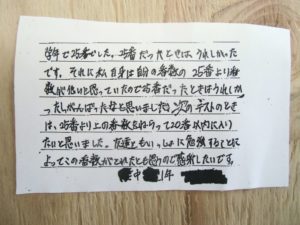 学年で25番でした。25番だったときはうれしかった
です。それに私自身は自分の番数の25番より番
数が低いと思っていたので25番だったときはうれしか
ったしがんばったなと思いました。次のテストのとき
は、25番より上の番数をねらって20番以内に入り
たいと思いました。友達ともいっしょに勉強することに
よってこの番数がとれたとも思うので感謝したいです。
中 1年